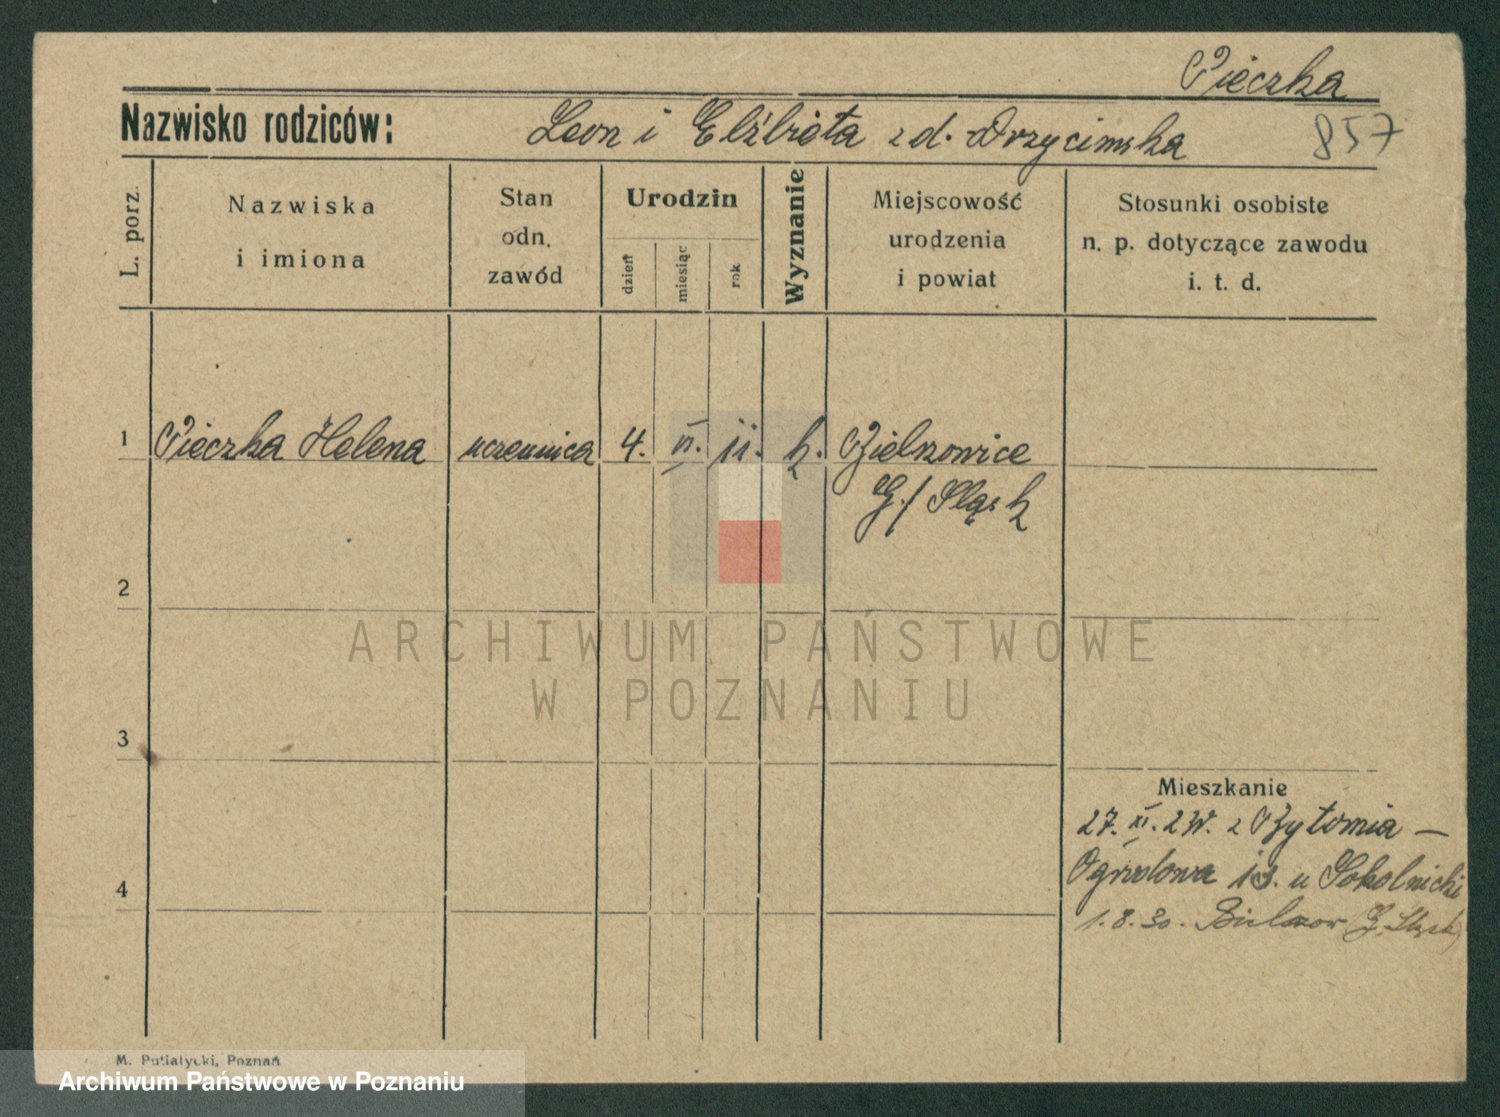 Pieczka
Nazwisko rodziców: Leon i Elżbieta z d. Drzycimska 857
L. porz.
Nazwiska
i imiona
Stan
odn.
zawód
Urodzin
dzień
miesiąc
rok
Wyznanie
Miejscowość
urodzenia
i powiat
Stosunki osobiste
n. p. dotyczące zawodu
i. t. d.
1 Pieczka Helena uczennica 4. VI. 11. k. Bielszowice
G./Śląsk
2
ARCHIWUM PAŃSTWOWE
W POZNANIU
3
Mieszkanie
27. XI. z Bytomia —
Ogrodowa 13. u Sokolnicki
4
1. 8. 30. G. Śląsk)
M. Putiatycki, Poznań
Archiwum Państwowe w Poznaniu